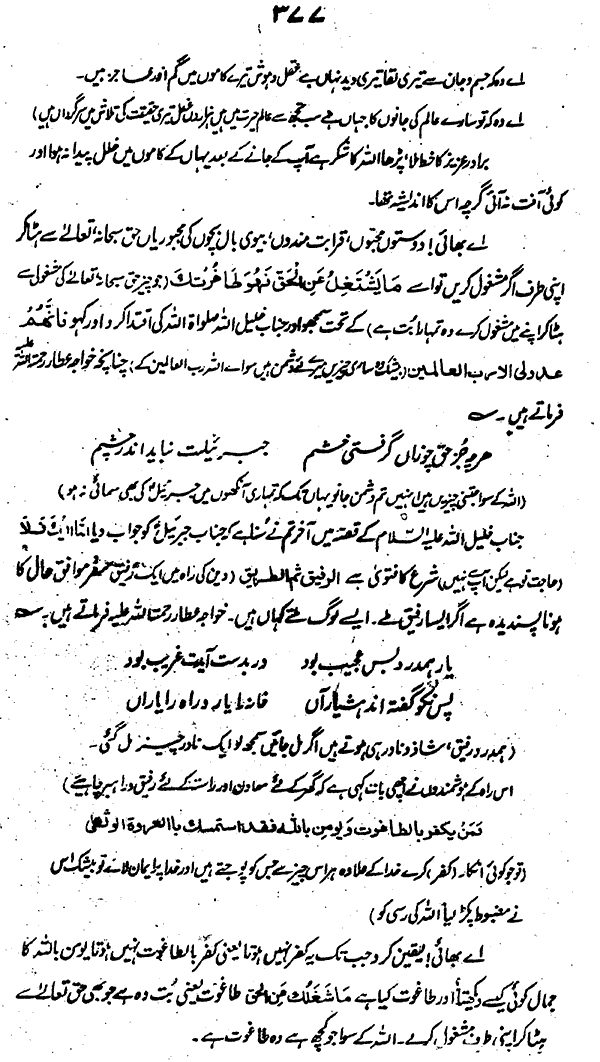 ۳۷۷
اے وہ کہ جسم و جان سے تیری لقا تیری دید نہاں ہے عقل و ہوش تیرے کاموں میں گم اور عاجز ہیں۔
اے وہ کہ تو سارے عالم کی جانوں کا جہاں ہے سب تجھ سے عالم حیرت میں ہیں ہزاروں عقل تیری حقیقت کی تلاش میں سرگرداں ہیں)
برادر عزیز کا خط ملا، پڑھا اللہ کا شکر ہے آپ کے جانے کے بعد یہاں کے کاموں میں خلل پیدا نہ ہوا اور
کوئی آفت نہ آئی گرچہ اس کا اندیشہ تھا۔
اے بھائی! دوستوں محبّوں، قرابت مندوں، بیوی بال بچوں کی مجبوریاں حق سبحانہ، تعالےٰ سے ہٹا کر
اپنی طرف اگر مشغول کریں تو اسے مَا یَشْتَغِلُ عَنِ الْحَقِّ فَهُوَ طَاغُوْتُكَ (جو چیز حق سبحانہ تعالےٰ کی مشغولی سے
ہٹا کر اپنے میں مشغول کرے وہ تمہارا بت ہے) کے تحت سمجھو اور جناب خلیل اللہ صلواۃ اللہ کی اقتدا کرو اور کہو فانَّهُمُ
عدولی الا رب العالمین (بیشک وہ ساری چیزیں میرے لئے دشمن ہیں سوائے اللہ رب العالمین کے) چنانچہ خواجہ عطار رحمۃ اللہ علیہ
فرماتے ہیں۔
ہرچہ جُز حق چوزاں گرفتی خشم جبرئیلت نباید اندر چشم
(اللہ کے سوا جتنی چیزوں ہیں انہیں تم دشمن جانو یہاں تک کہ تمہاری آنکھوں میں جبرئیلؑ کی بھی سمائی نہ ہو)
جناب خلیل اللہ علیہ السّلام کے قصّہ میں آخر تم نے سنا ہے کہ جناب جبرئیلؑ کو جواب دیا امّا الیك فلا
(حاجت تو ہے لیکن آپ سے نہیں) شرع کا فتویٰ ہے الرفیق ثم الطریق (دین کی راہ میں ایک رفیق سفر موافق حال کا
ہونا پسندیدہ ہے اگر ایسا رفیق ملے۔ ایسے لوگ ملتے کہاں ہیں۔ خواجہ عطار رحمۃ اللہ علیہ فرماتے ہیں۔
یار ہمدرد بس عجیب بود ور بدست آیدت غریب بود
پس نکو گفتہ اند ہشیاراں خانہ را یار و راہ را یاراں
(ہمدرد رفیق، شاذ و نادر ہی ہوتے ہیں اگر مل جائیں سمجھ لو ایک نادر چیز مل گئی۔
اس راہ کے ہوشمندوں نے اچھی بات کہی ہے کہ گھر کے لئے معاون اور راستے کے لئے رفیق و راہبر چاہیئے)
فمن یکفر بالطاغوت و یومن باللہ فقد استمسك باالعروۃ الوثقیٰ
(تو جو کوئی انکار۔ (کفر) کرے خدا کے علاوہ ہر اس چیز سے جس کو پوجتے ہیں اور خدا پر ایمان لائے تو بیشک اس
نے مضبوط پکڑ لیا اللہ کی رسی کو)
اے بھائی! یقین کرو جب تک یہ کفر نہیں ہوتا یعنی کفر بالطاغوت نہیں ہوتا یومن باللہ کا
جمال کوئی کیسے دیکھتا! اور طاغوت کیا ہے مَا شَغَلَكَ عَنِ الحق طاغوت یعنی بت وہ ہے جو بھی حق تعالےٰ سے
ہٹا کر اپنی طرف مشغول کرلے۔ اللہ کے سوا جو کچھ ہے وہ طاغوت ہے۔